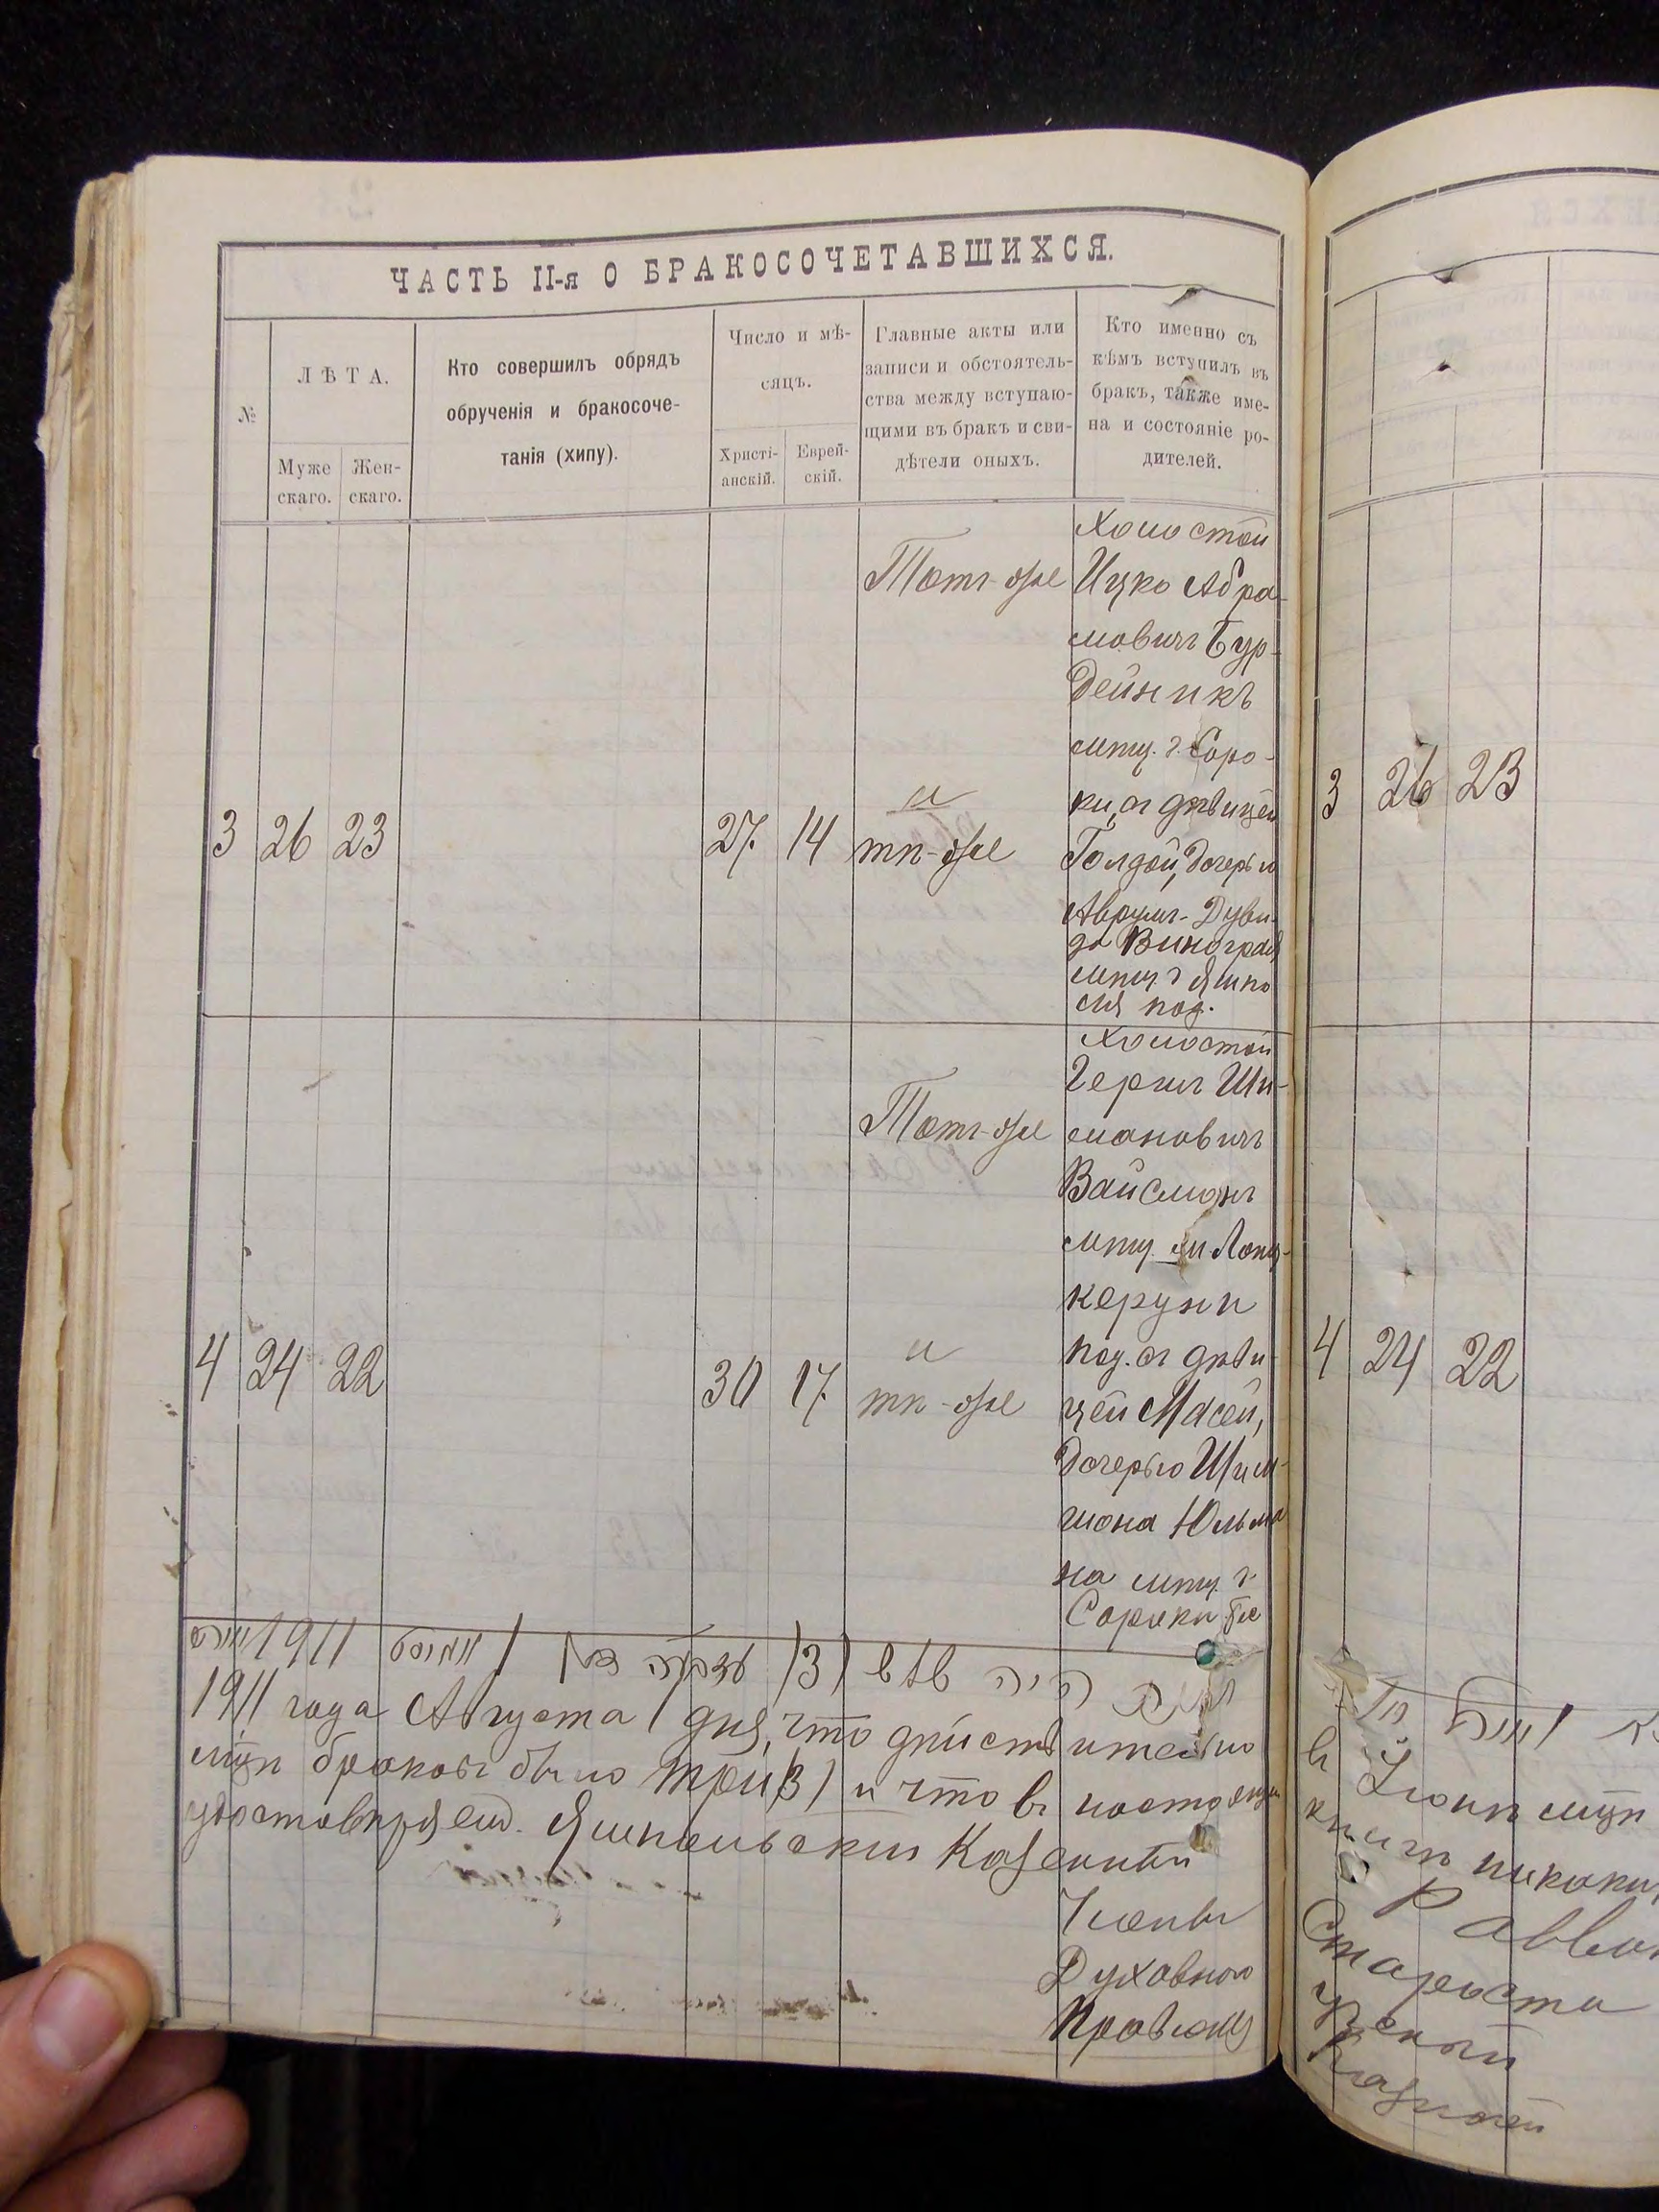 ЧАСТЬ II-я О БРАКОСОЧЕТАВШИХСЯ.
№
ЛѢТА.
Муже
скаго.
Жен-
скаго.
Кто совершилъ обрядъ
обрученія и бракосоче-
танія (хипу).
Число и мѣ-
сяцъ.
Христі-
анскій.
Еврей-
скій.
Главные акты или
записи и обстоятель-
ства между вступаю-
щими въ бракъ и сви-
дѣтели оныхъ.
Кто именно съ
кѣмъ вступилъ въ
бракъ, также име-
на и состояніе ро-
дителей.
3 26 23
27. 14
Тотъ-же
и
тѣ-же
Холостой
Ицко Абра-
мовичъ Бур-
дейникъ
мѣщ. г. Соро-
ки, съ дѣвицей
Голдой, дочерью
Аврумъ-Дуви-
да Виноград
мѣщ. г Ямпо
ля под.
4 24 22
30 17.
Тотъ-же
и
тѣ-же
Холостой
Гершъ Ши-
мановичъ
Вайсманъ
мѣщ. м.
керуни
под. съ дѣви-
цей Масей,
дочерью Шим-
шона Юльма
на мѣщ. г.
Сороки Бес
1911
1911 года Августа 1 дня, что дѣйствительно
мцѣ браковъ было три (3) и что въ настоящей
удостовѣряемъ. Ямпольскій Казенный
Члены
Духовнаго
Правленія
3 26 23
4 24 22
въ Іюлѣ мцѣ
книгѣ никаких
Равви
Староста
Ученый
Казначей